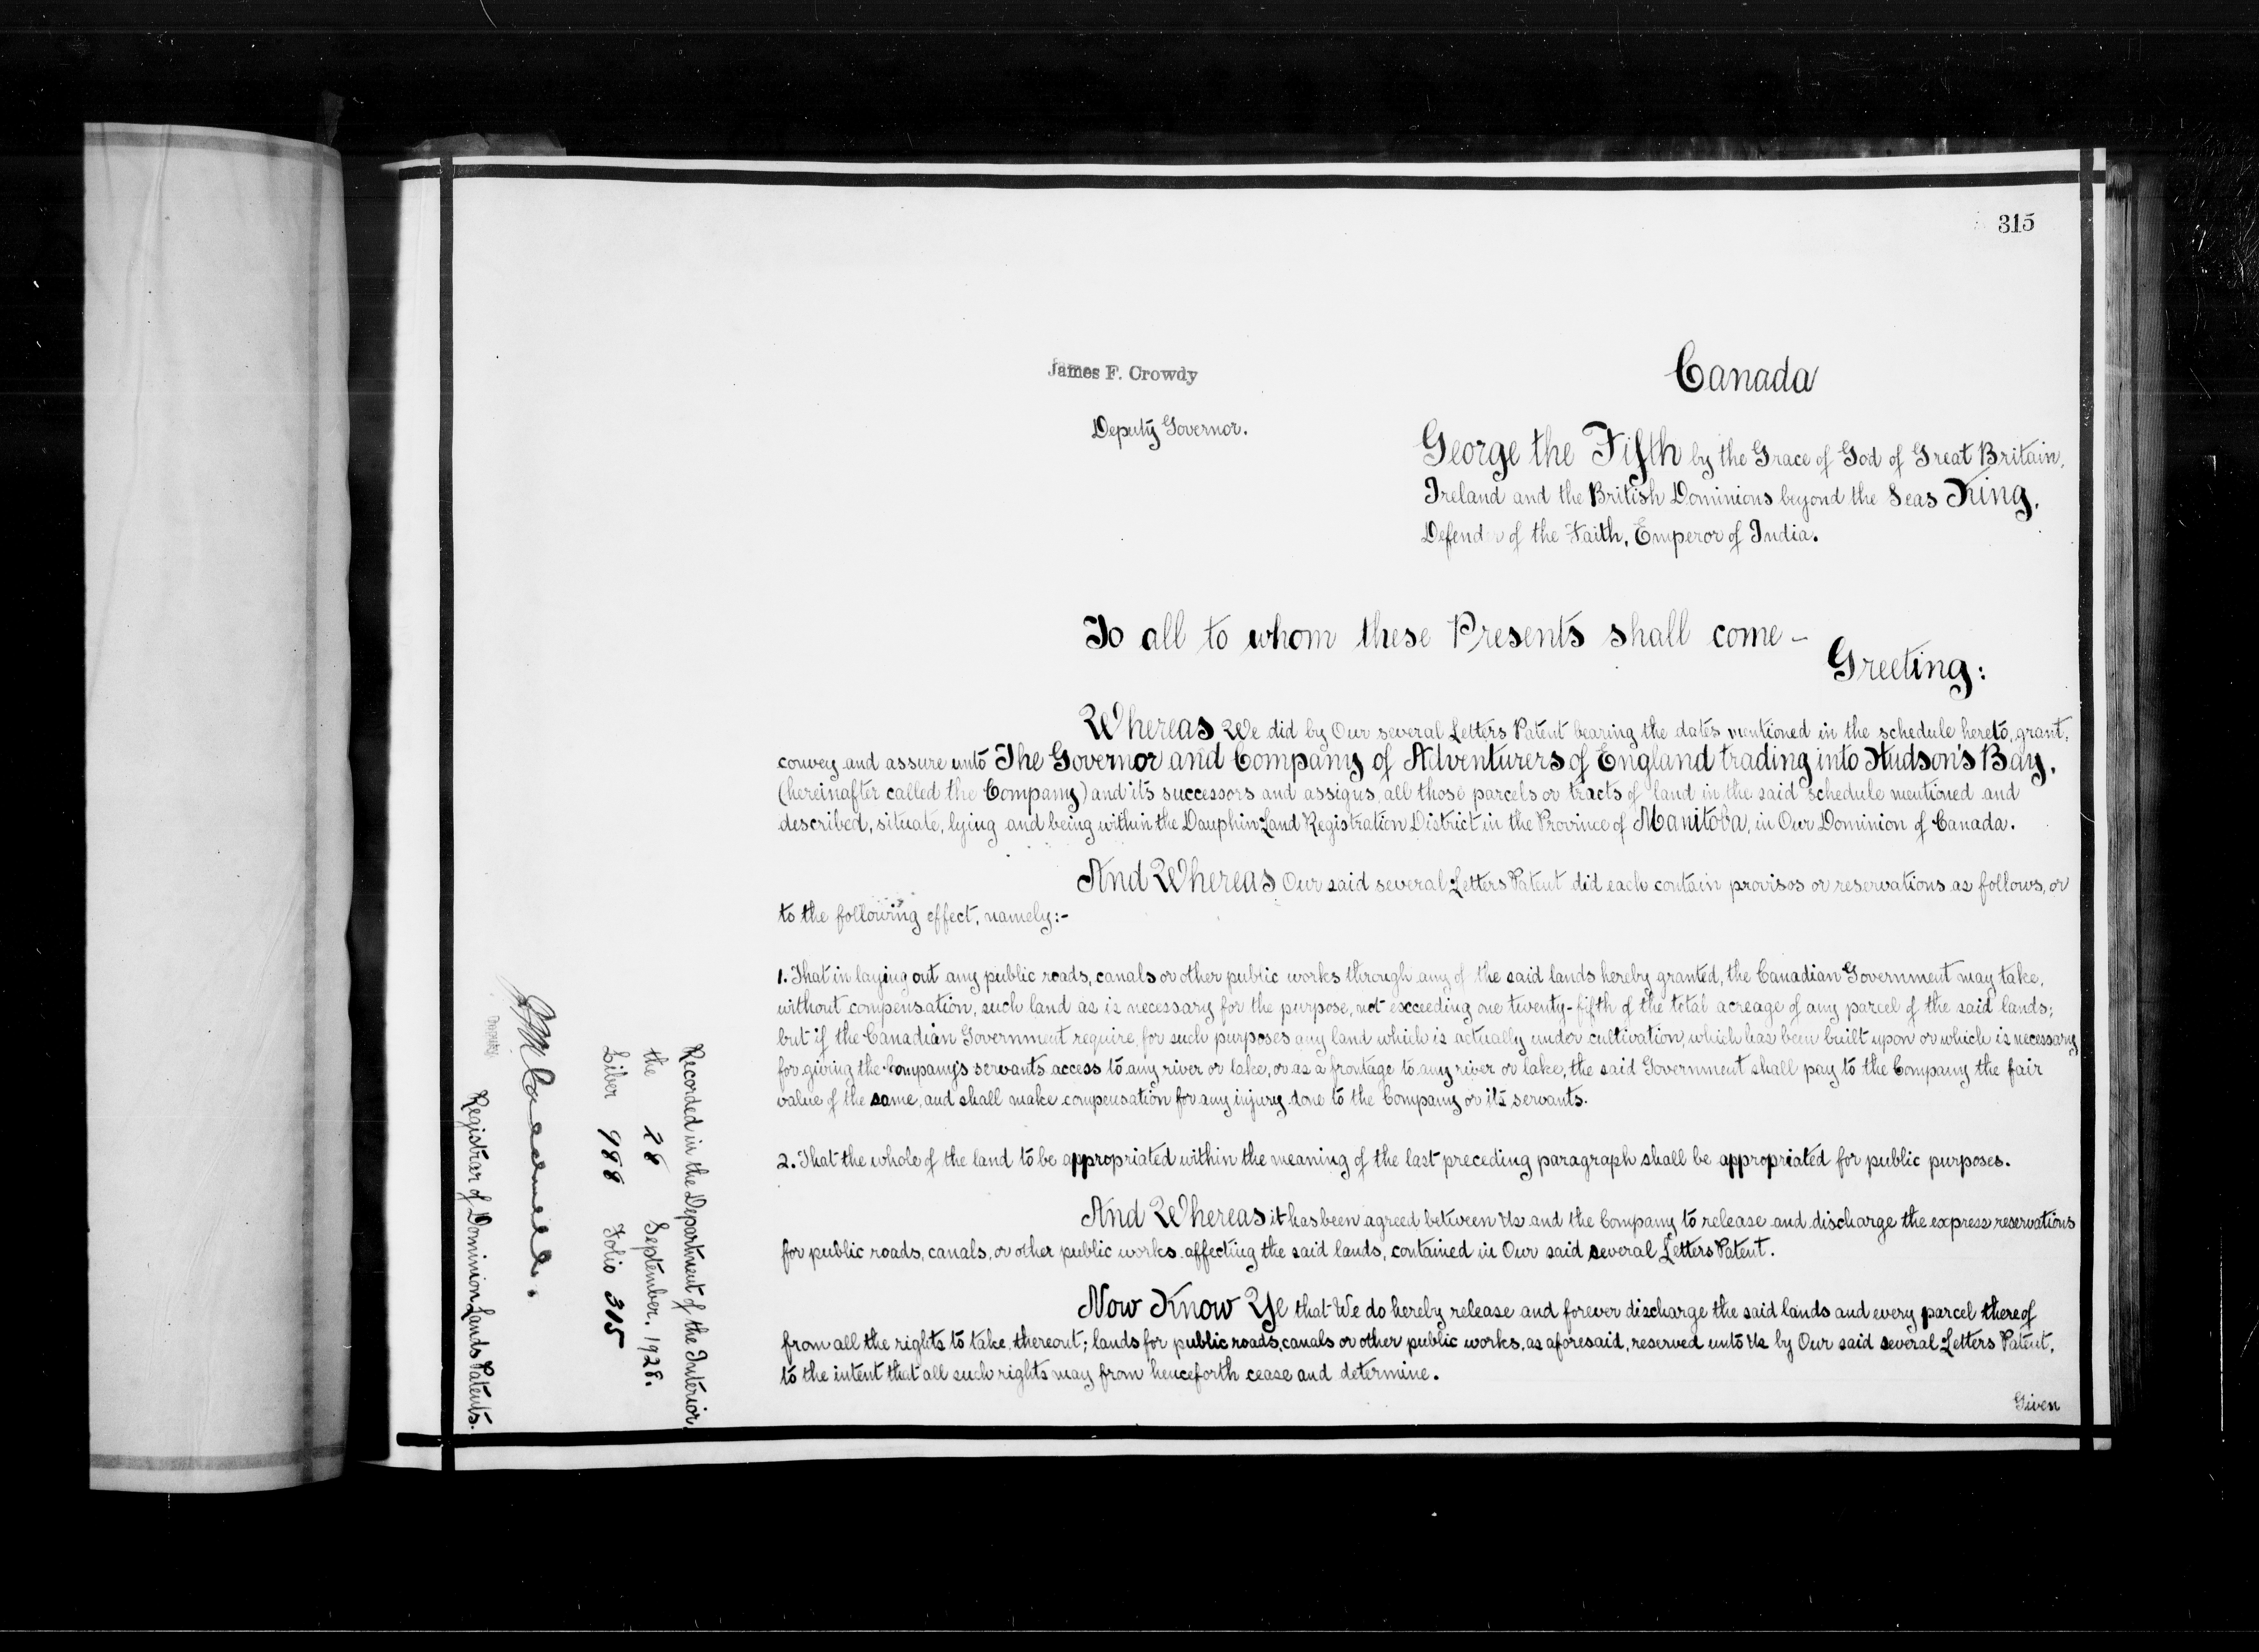 315
James F. Crowdy
Deputy Governor.
Canada
George the Fifth by the Grace of God of Great Britain,
Ireland and the British Dominions beyond the Seas King,
Defender of the Faith, Emperor of India.
To all to whom these Presents shall come –
Greeting:
Whereas We did by Our several Letters Patent bearing the dates mentioned in the schedule hereto, grant,
convey and assure unto The Governor and Company of Adventurers of England trading into Hudson's Bay,
(hereinafter called the Company) and its successors and assigns, all those parcels or tracts of land in the said schedule mentioned and
described, situate, lying and being within the Dauphin Land Registration District in the Province of Manitoba, in Our Dominion of Canada.
And Whereas Our said several Letters Patent did each contain provisos or reservations as follows, or
to the following effect, namely:-
1. That in laying out any public roads, canals or other public works through any of the said lands hereby granted, the Canadian Government may take,
without compensation, such land as is necessary for the purpose, not exceeding one twenty-fifth of the total acreage of any parcel of the said lands;
but if the Canadian Government require, for such purposes any land which is actually under cultivation, which has been built upon or which is necessary
for giving the Company's servants access to any river or lake, or as a frontage to any river or lake, the said Government shall pay to the Company the fair
value of the same, and shall make compensation for any injury done to the Company or its servants.
2. That the whole of the land to be appropriated within the meaning of the last preceding paragraph shall be appropriated for public purposes.
And Whereas it has been agreed between Us and the Company to release and discharge the express reservations
for public roads, canals, or other public works affecting the said lands, contained in Our said several Letters Patent.
Now Know Ye that We do hereby release and forever discharge the said lands and every parcel thereof
from all the rights to take thereout; lands for public roads, canals or other public works, as aforesaid, reserved unto Us by Our said several Letters Patent,
to the intent that all such rights may from henceforth cease and determine.
Given
Recorded in the Department of the Interior
the 28 September, 1928.
Liber 988 Folio 315
Registrar of Dominion Lands Patents.